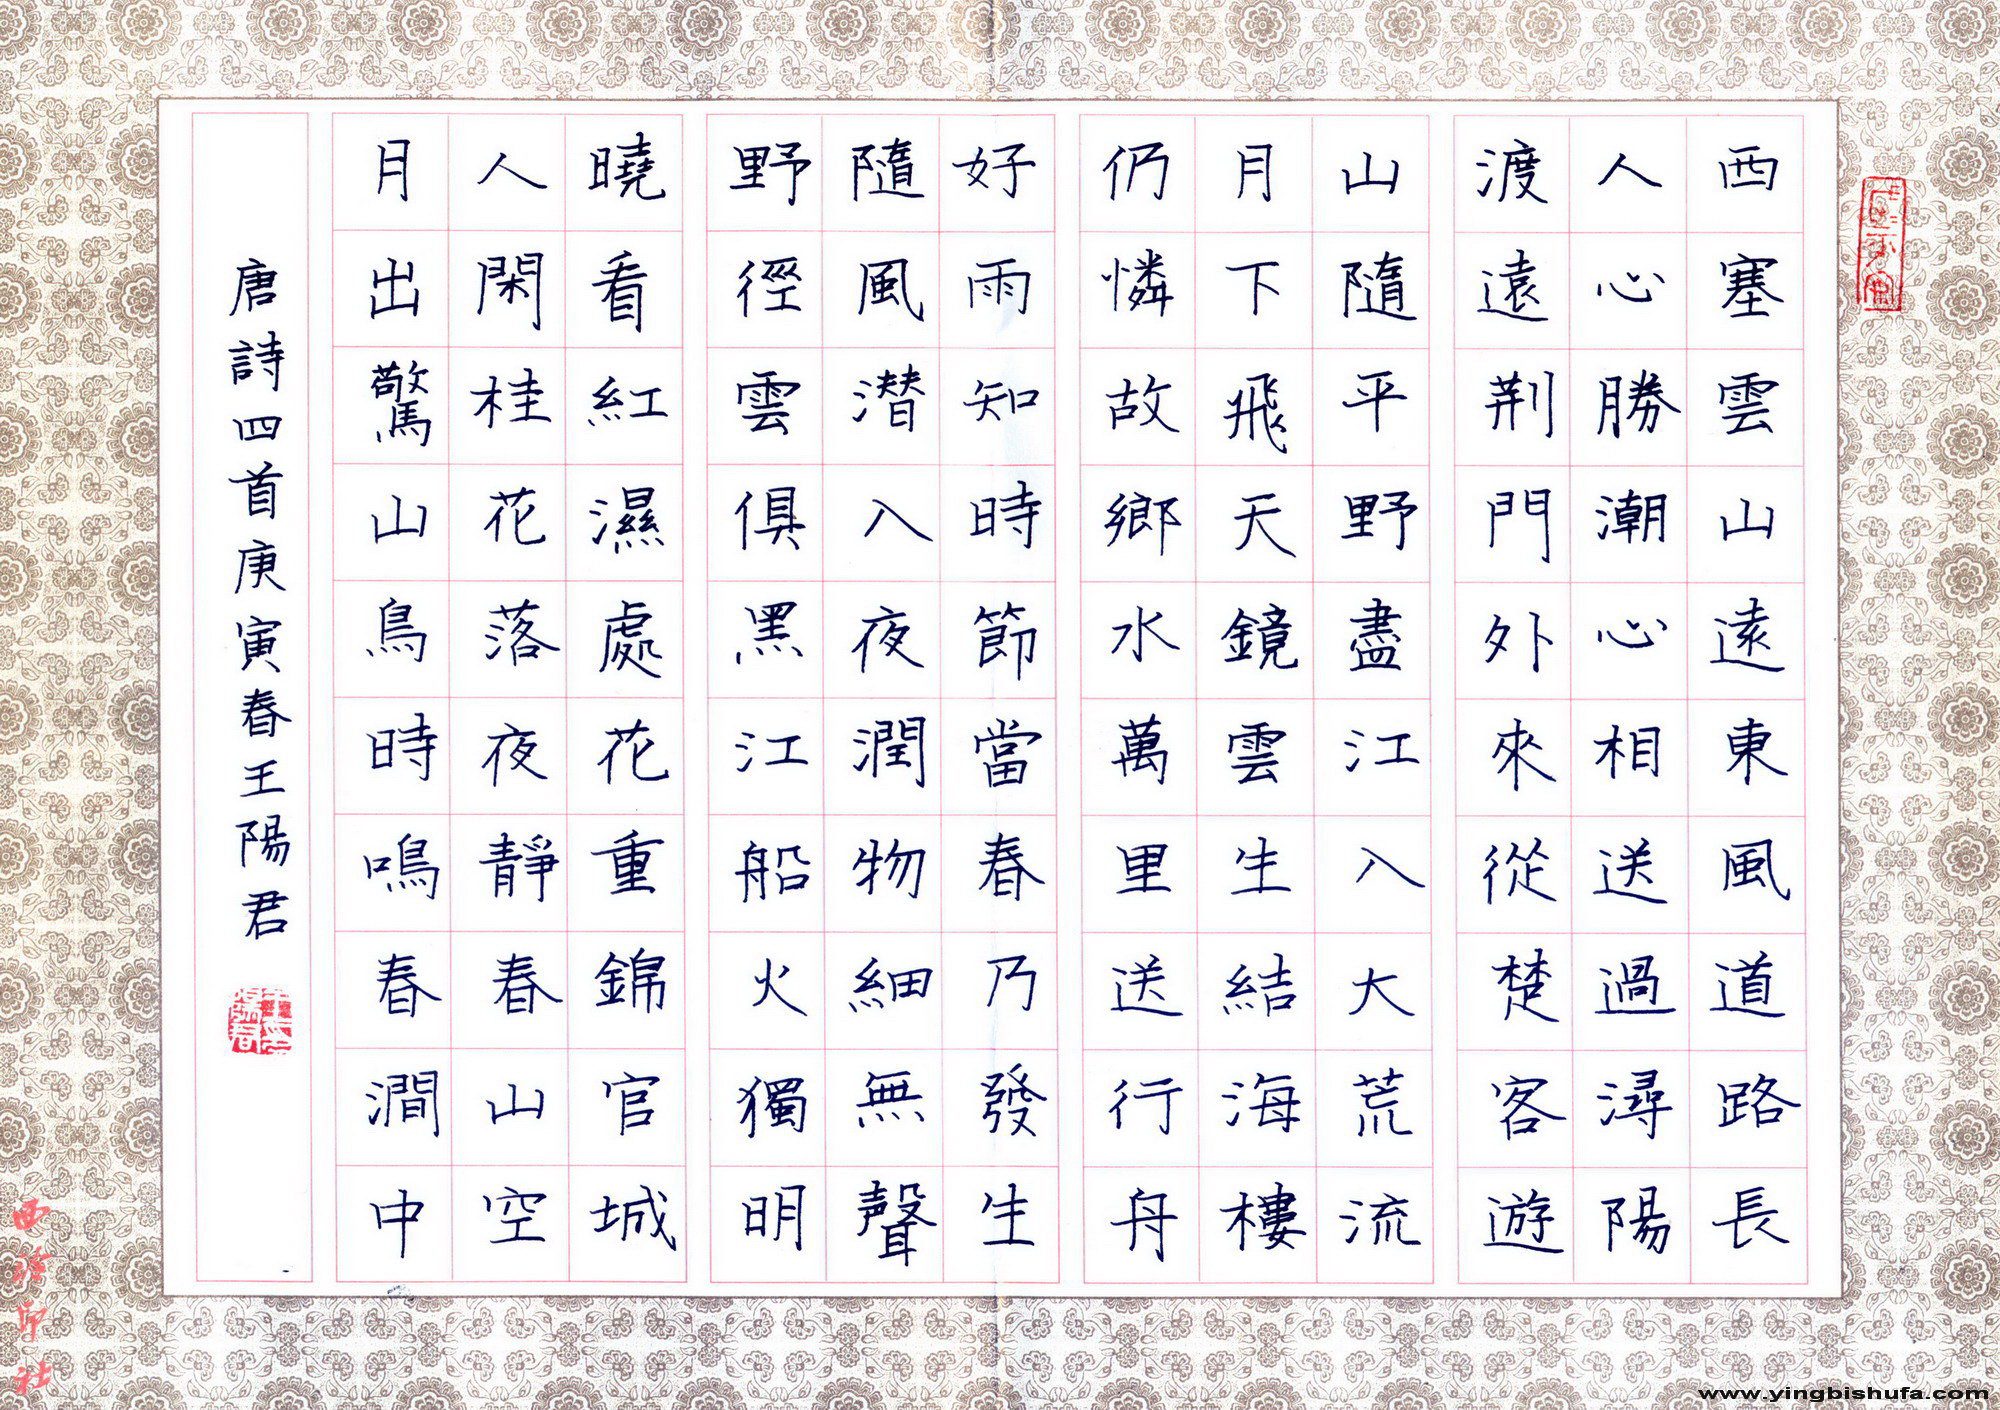 西塞雲山遠東風道路長
人心勝潮心相送過潯陽
渡遠荆門外來從楚客遊
山隨平野盡江入大荒流
月下飛天鏡雲生結海樓
仍憐故鄉水萬里送行舟
好雨知時節當春乃發生
隨風潜入夜潤物細無聲
野徑雲俱黑江船火獨明
曉看紅濕處花重錦官城
人閑桂花落夜靜春山空
月出驚山鳥時鳴春澗中
唐詩四首庚寅春王陽君
西泠印社
www.yingbishufa.com